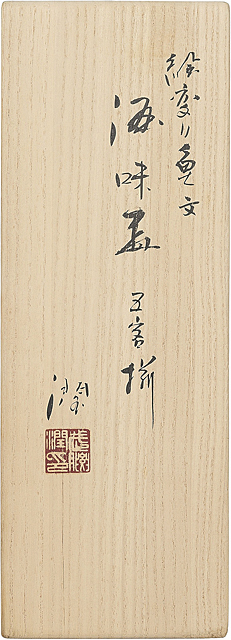 絵変り魚文
酒味盃 五客揃
潤